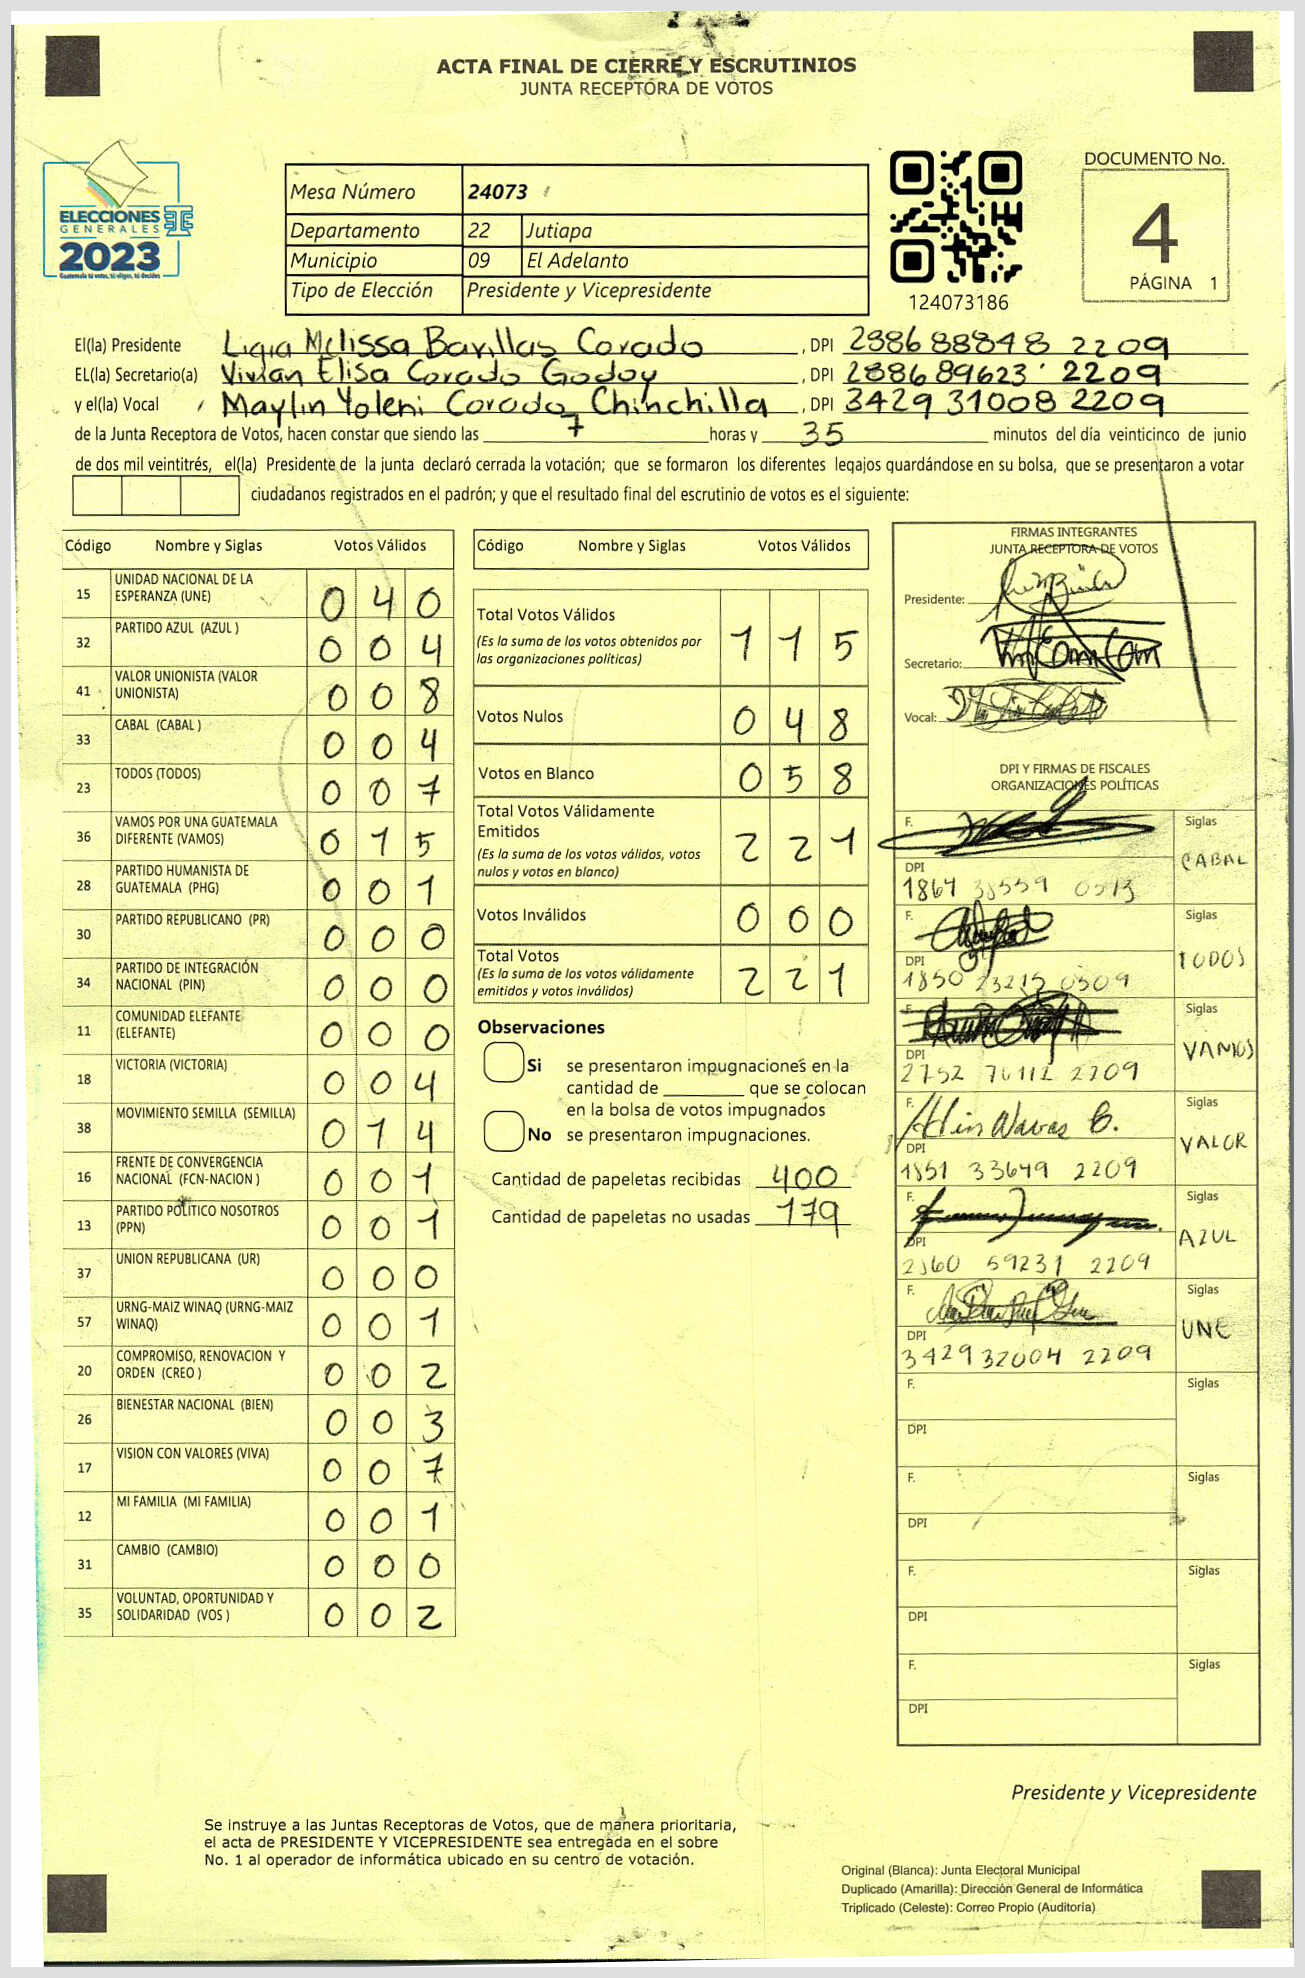 ACTA FINAL DE CIERRE Y ESCRUTINIOS
JUNTA RECEPTORA DE VOTOS
ELECCIONES
GENERALES
2023
Guatemala tú votas, tú eliges, tú decides
Mesa Número 24073
Departamento 22 Jutiapa
Municipio 09 El Adelanto
Tipo de Elección Presidente y Vicepresidente
124073186
DOCUMENTO No.
4
PÁGINA 1
El(la) Presidente Ligia Melissa Barillas Corado , DPI 238688848 2209
EL(la) Secretario(a) Vivian Elisa Corado Godoy , DPI 288689623 2209
y el(la) Vocal Maylin Yoleni Corado Chinchilla , DPI 3429 31008 2209
de la Junta Receptora de Votos, hacen constar que siendo las 7 horas y 35 minutos del día veinticinco de junio
de dos mil veintitrés, el(la) Presidente de la junta declaró cerrada la votación; que se formaron los diferentes legajos guardándose en su bolsa, que se presentaron a votar
ciudadanos registrados en el padrón; y que el resultado final del escrutinio de votos es el siguiente:
Código Nombre y Siglas Votos Válidos
15 UNIDAD NACIONAL DE LA ESPERANZA (UNE) 0 4 0
32 PARTIDO AZUL (AZUL ) 0 0 4
41 VALOR UNIONISTA (VALOR UNIONISTA) 0 0 8
33 CABAL (CABAL ) 0 0 4
23 TODOS (TODOS) 0 0 7
36 VAMOS POR UNA GUATEMALA DIFERENTE (VAMOS) 0 1 5
28 PARTIDO HUMANISTA DE GUATEMALA (PHG) 0 0 1
30 PARTIDO REPUBLICANO (PR) 0 0 0
34 PARTIDO DE INTEGRACIÓN NACIONAL (PIN) 0 0 0
11 COMUNIDAD ELEFANTE (ELEFANTE) 0 0 0
18 VICTORIA (VICTORIA) 0 0 4
38 MOVIMIENTO SEMILLA (SEMILLA) 0 1 4
16 FRENTE DE CONVERGENCIA NACIONAL (FCN-NACION ) 0 0 1
13 PARTIDO POLÍTICO NOSOTROS (PPN) 0 0 1
37 UNION REPUBLICANA (UR) 0 0 0
57 URNG-MAIZ WINAQ (URNG-MAIZ WINAQ) 0 0 1
20 COMPROMISO, RENOVACION Y ORDEN (CREO ) 0 0 2
26 BIENESTAR NACIONAL (BIEN) 0 0 3
17 VISION CON VALORES (VIVA) 0 0 7
12 MI FAMILIA (MI FAMILIA) 0 0 1
31 CAMBIO (CAMBIO) 0 0 0
35 VOLUNTAD, OPORTUNIDAD Y SOLIDARIDAD (VOS ) 0 0 2
Código Nombre y Siglas Votos Válidos
Total Votos Válidos
(Es la suma de los votos obtenidos por las organizaciones políticas) 1 1 5
Votos Nulos 0 4 8
Votos en Blanco 0 5 8
Total Votos Válidamente Emitidos
(Es la suma de los votos válidos, votos nulos y votos en blanco) 2 2 1
Votos Inválidos 0 0 0
Total Votos
(Es la suma de los votos válidamente emitidos y votos inválidos) 2 2 1
Observaciones
Si se presentaron impugnaciones en la
cantidad de ________ que se colocan
en la bolsa de votos impugnados
No se presentaron impugnaciones.
Cantidad de papeletas recibidas 400
Cantidad de papeletas no usadas 179
FIRMAS INTEGRANTES
JUNTA RECEPTORA DE VOTOS
Presidente:
Secretario:
Vocal:
DPI Y FIRMAS DE FISCALES
ORGANIZACIONES POLÍTICAS
F. Siglas
CABAL
DPI
1864
F. Siglas
TODOS
DPI
1850 23215 0309
F. Siglas
VAMOS
DPI
2752 76112 2209
F. Siglas
VALOR
DPI
1851 33649 2209
F. Siglas
AZUL
DPI
2360 59231 2209
F. Siglas
UNE
DPI
3429 32004 2209
F. Siglas
DPI
F. Siglas
DPI
F. Siglas
DPI
F. Siglas
DPI
Presidente y Vicepresidente
Se instruye a las Juntas Receptoras de Votos, que de manera prioritaria,
el acta de PRESIDENTE Y VICEPRESIDENTE sea entregada en el sobre
No. 1 al operador de informática ubicado en su centro de votación.
Original (Blanca): Junta Electoral Municipal
Duplicado (Amarilla): Dirección General de Informática
Triplicado (Celeste): Correo Propio (Auditoría)